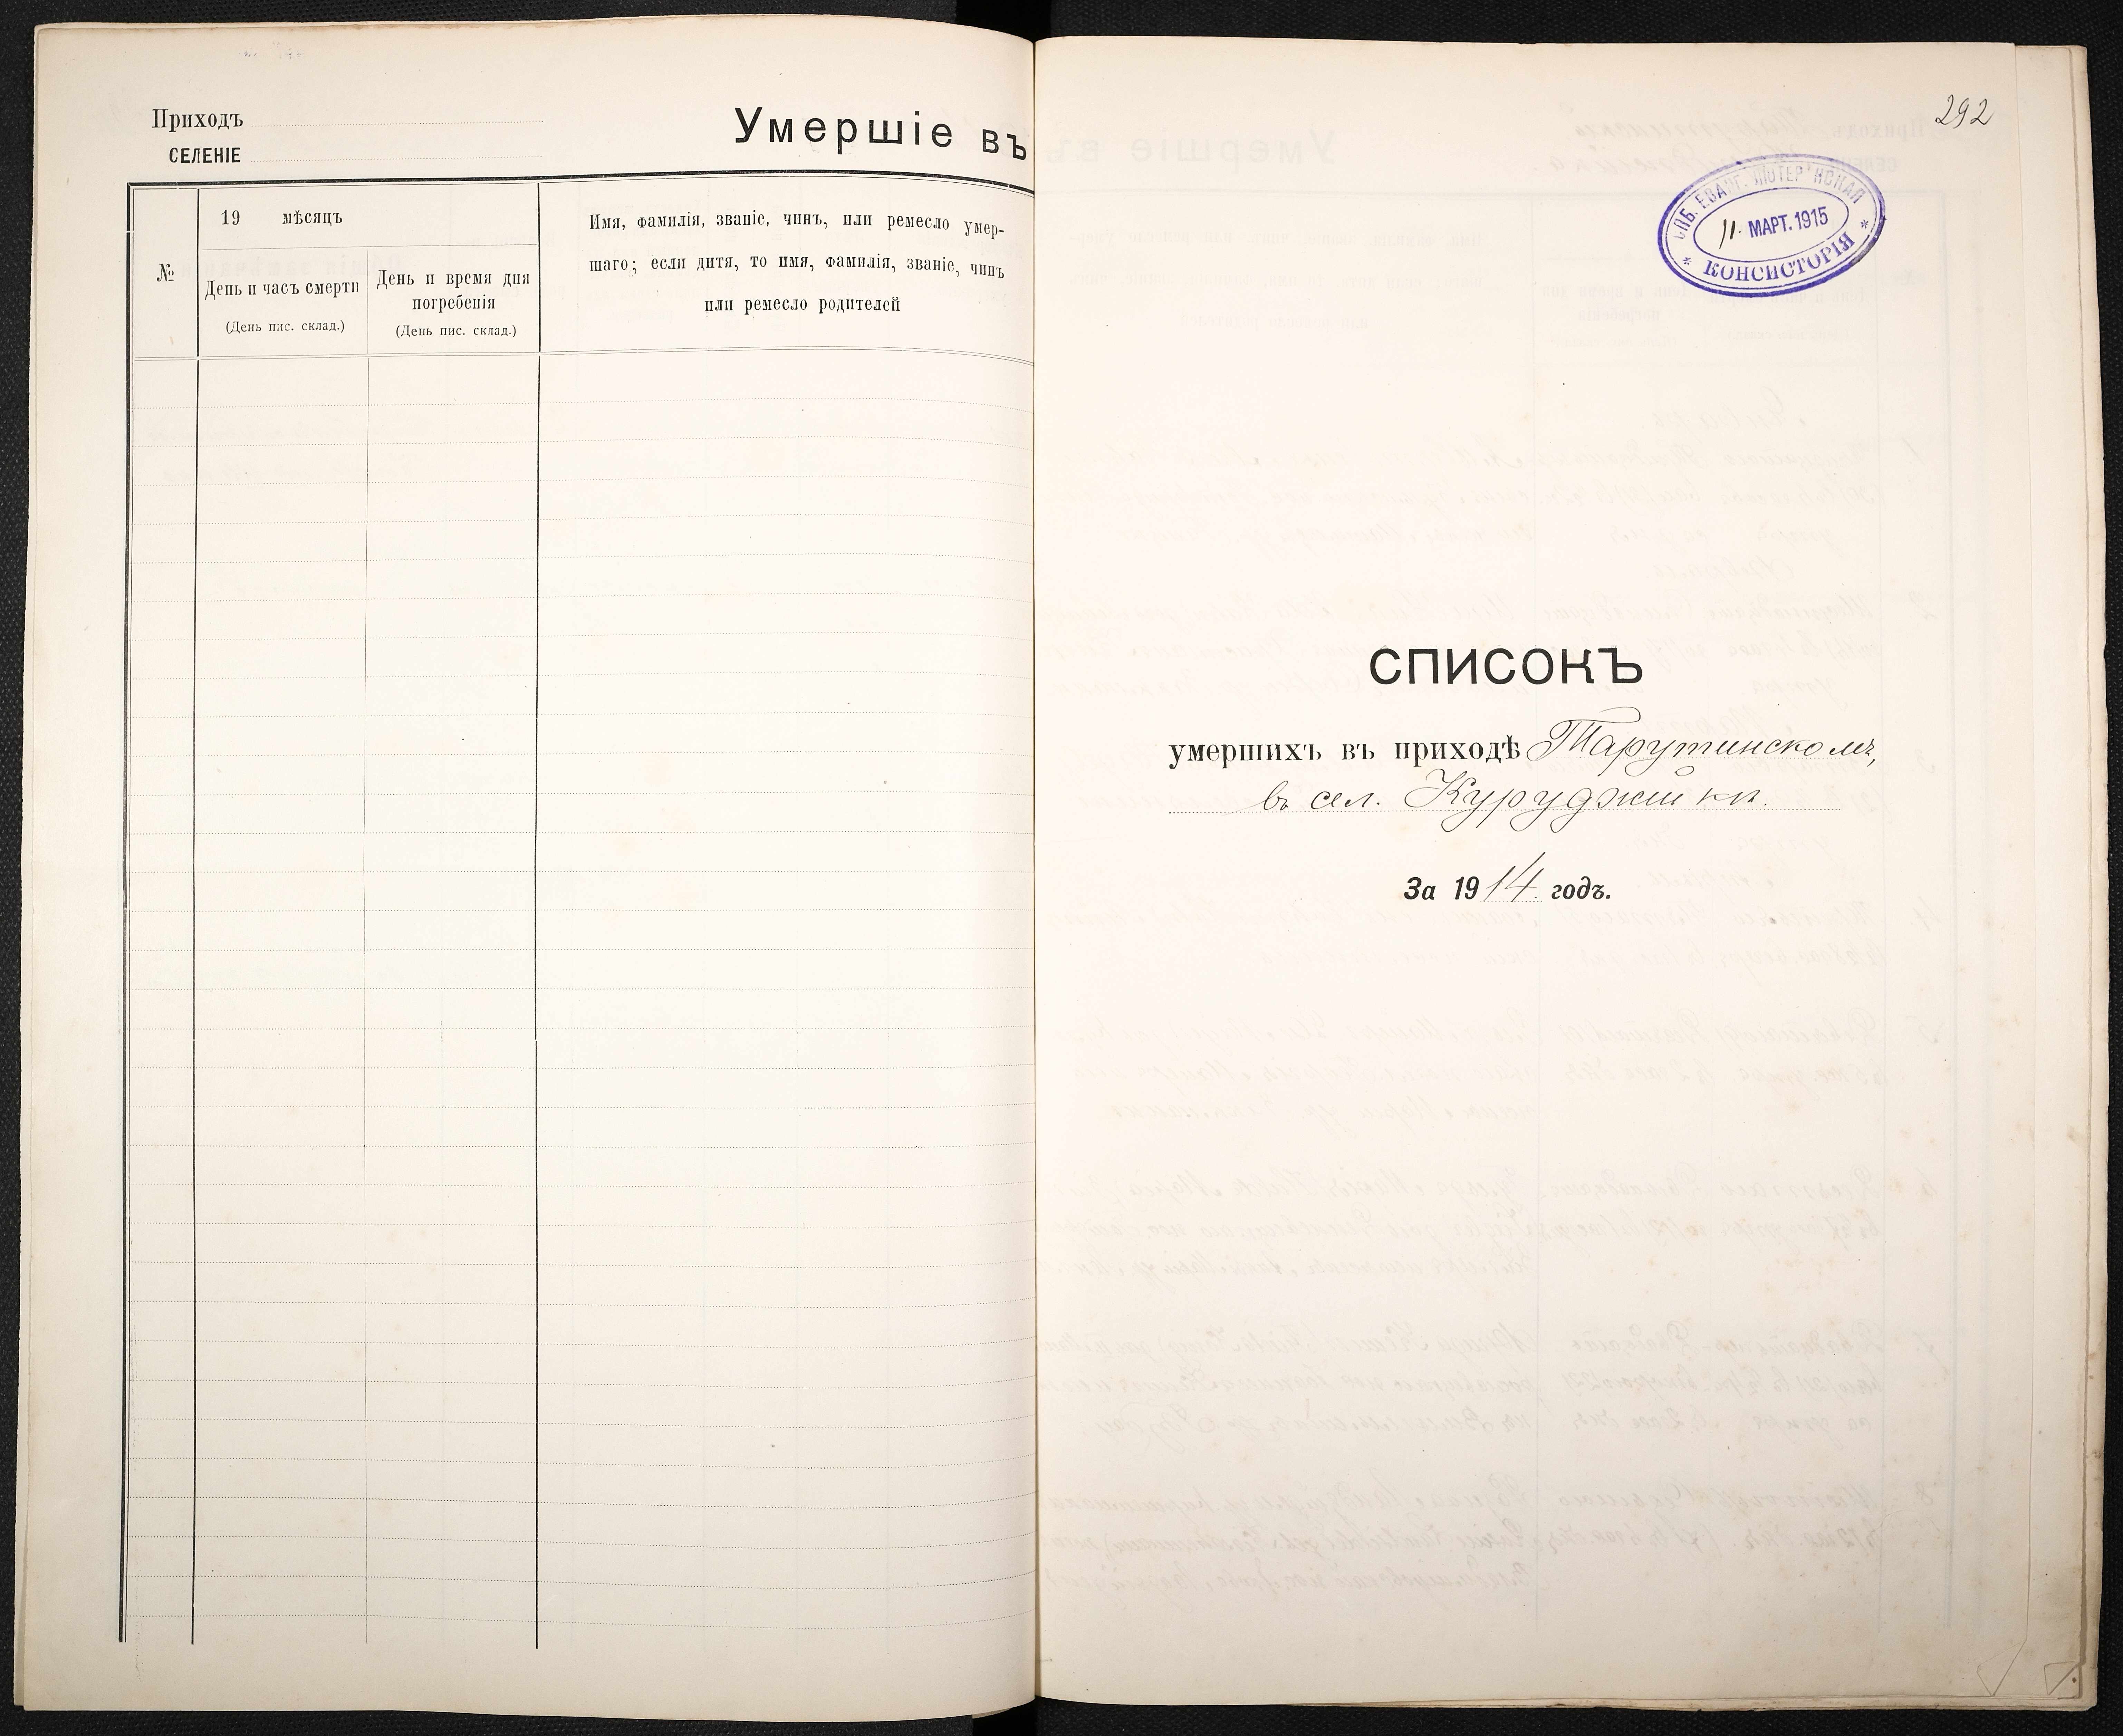 Приходъ
СЕЛЕНІЕ
Умершіе въ
№
19 мѣсяцъ
День и часъ смерти
(День пис. склад.)
День и время дня
погребенія
(День пис. склад.)
Имя, фамилія, званіе, чинъ, или ремесло умер-
шаго; если дитя, то имя, фамилія, званіе, чинъ
или ремесло родителей
292
СПБ. ЕВАНГ. ЛЮТЕРАНСКАЯ
11. МАРТ. 1915
* КОНСИСТОРІЯ *
СПИСОКЪ
умершихъ въ приходѣ Тарутинскомъ,
въ сел. Куруджийкѣ.
За 1914 годъ.